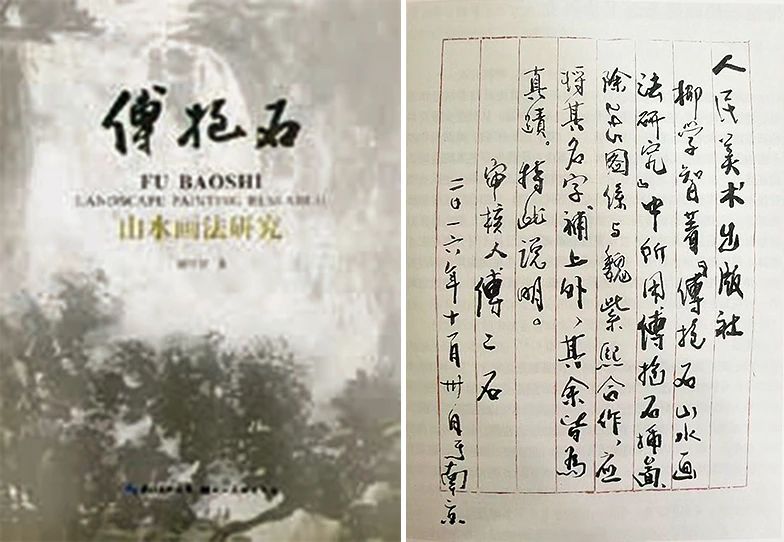 傅抱石
FU BAOSHI
LANDSCAPE PAINTING RESEARCH
山水画法研究
著
人民美术出版社
柳学智著『傅抱石山水画
法研究』中所用傅抱石插圖
除245圖係与魏紫熙合作，应
将其名字補上外、其余皆為
真蹟。特此说明。
审核人傅二石
二〇一六年十一月卅日于南京